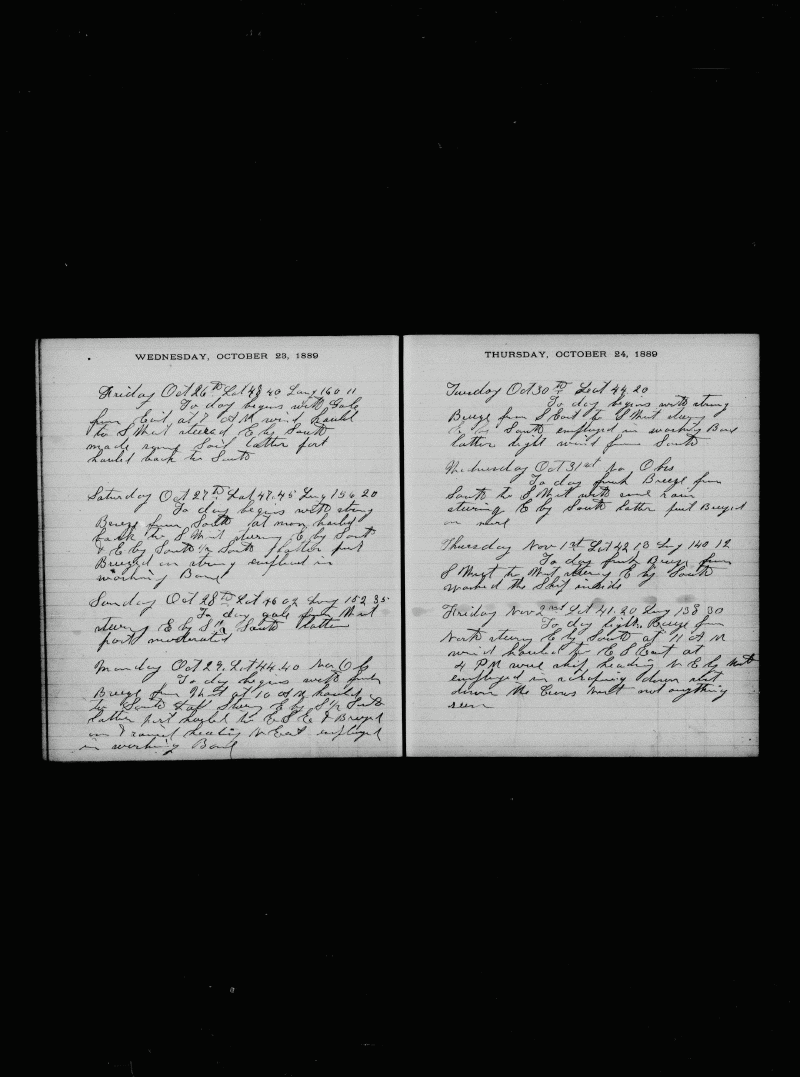 WEDNESDAY, OCTOBER 23, 1889
Friday Oct 26th Lat 48 40 Long 160 11
To day begins with Gale
from East at 7 A M wind hauld
to S West steered E by South
made some Sail latter part
hauled back to South
Saturday Oct 27th Lat 47.45 Long 156 20
To day begins with strong
Breeze from South at noon hauled
back to S West steering E by South
& E by South 1/2 South latter part
Breezed on strong employed in
working Bone
Sunday Oct 28th Lat 46 02 Long 152 35
To day gale from West
steering E by S 1/2 South latter
part moderated
Monday Oct 29. Lat 44.40 No Obs
To day begins with fresh
Breeze from West at 10 A M hauled
to South steering E by S 1/2 South
latter part hauled to E S E & Breezed
on & rained heading N East employed
in working Bone
THURSDAY, OCTOBER 24, 1889
Tuesday Oct 30th Lat 44 20
To day begins with strong
Breeze from S East to S West steering
E by South employed in working Bone
latter light wind from South
Wednesday Oct 31st no Obs
To day fresh Breeze from
South to S West with some rain
steering E by South latter part Breezed
on more
Thursday Nov 1st Lat 42 13 Long 140 12
To day fresh Breeze from
S West to West steering E by South
washed the Ship inside
Friday Nov 2nd Lat 41.20 Long 138 30
To day light Breeze from
North steering E by South at 11 A M
wind hauled to E S East at
4 P M wore ship heading N E by North
employed in scraping down
down the not anything
seen